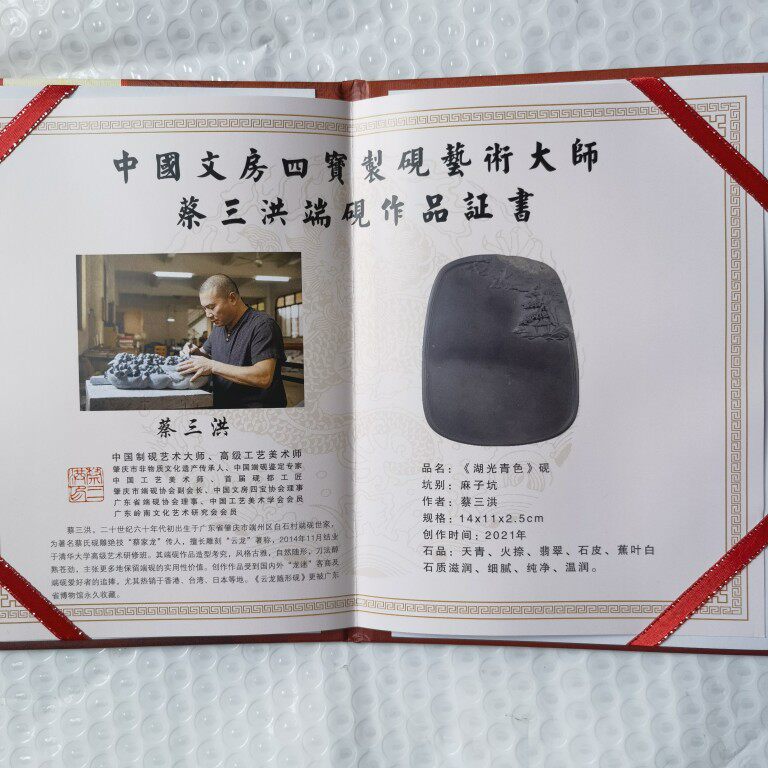 中國文房四寶製硯藝術大師
蔡三洪端硯作品証書
蔡三洪
中国制砚艺术大师、高级工艺美术师
肇庆市非物质文化遗产传承人、中国端砚鉴定专家
中国工艺美术师、首届砚都工匠
肇庆市端砚协会副会长、中国文房四宝协会理事
广东省端砚协会理事、中国工艺美术学会会员
广东岭南文化艺术研究会会员
蔡三洪，二十世纪六十年代初出生于广东省肇庆市端州区白石村端砚世家，
为著名蔡氏砚雕绝技“蔡家龙”传人，擅长雕刻“云龙”著称，2014年11月结业
于清华大学高级艺术研修班。其端砚作品造型考究，风格古雅，自然随形，刀法醇
熟苍劲，主张更多地保留端砚的实用性价值。创作作品受到国内外“龙迷”客商及
端砚爱好者的追捧，尤其热销于香港、台湾、日本等地。《云龙随形砚》更被广东
省博物馆永久收藏。
蔡三洪印
品名：《湖光青色》砚
坑别：麻子坑
作者：蔡三洪
规格：14x11x2.5cm
创作时间：2021年
石品：天青、火捺、翡翠、石皮、蕉叶白
石质滋润、细腻、纯净、温润。